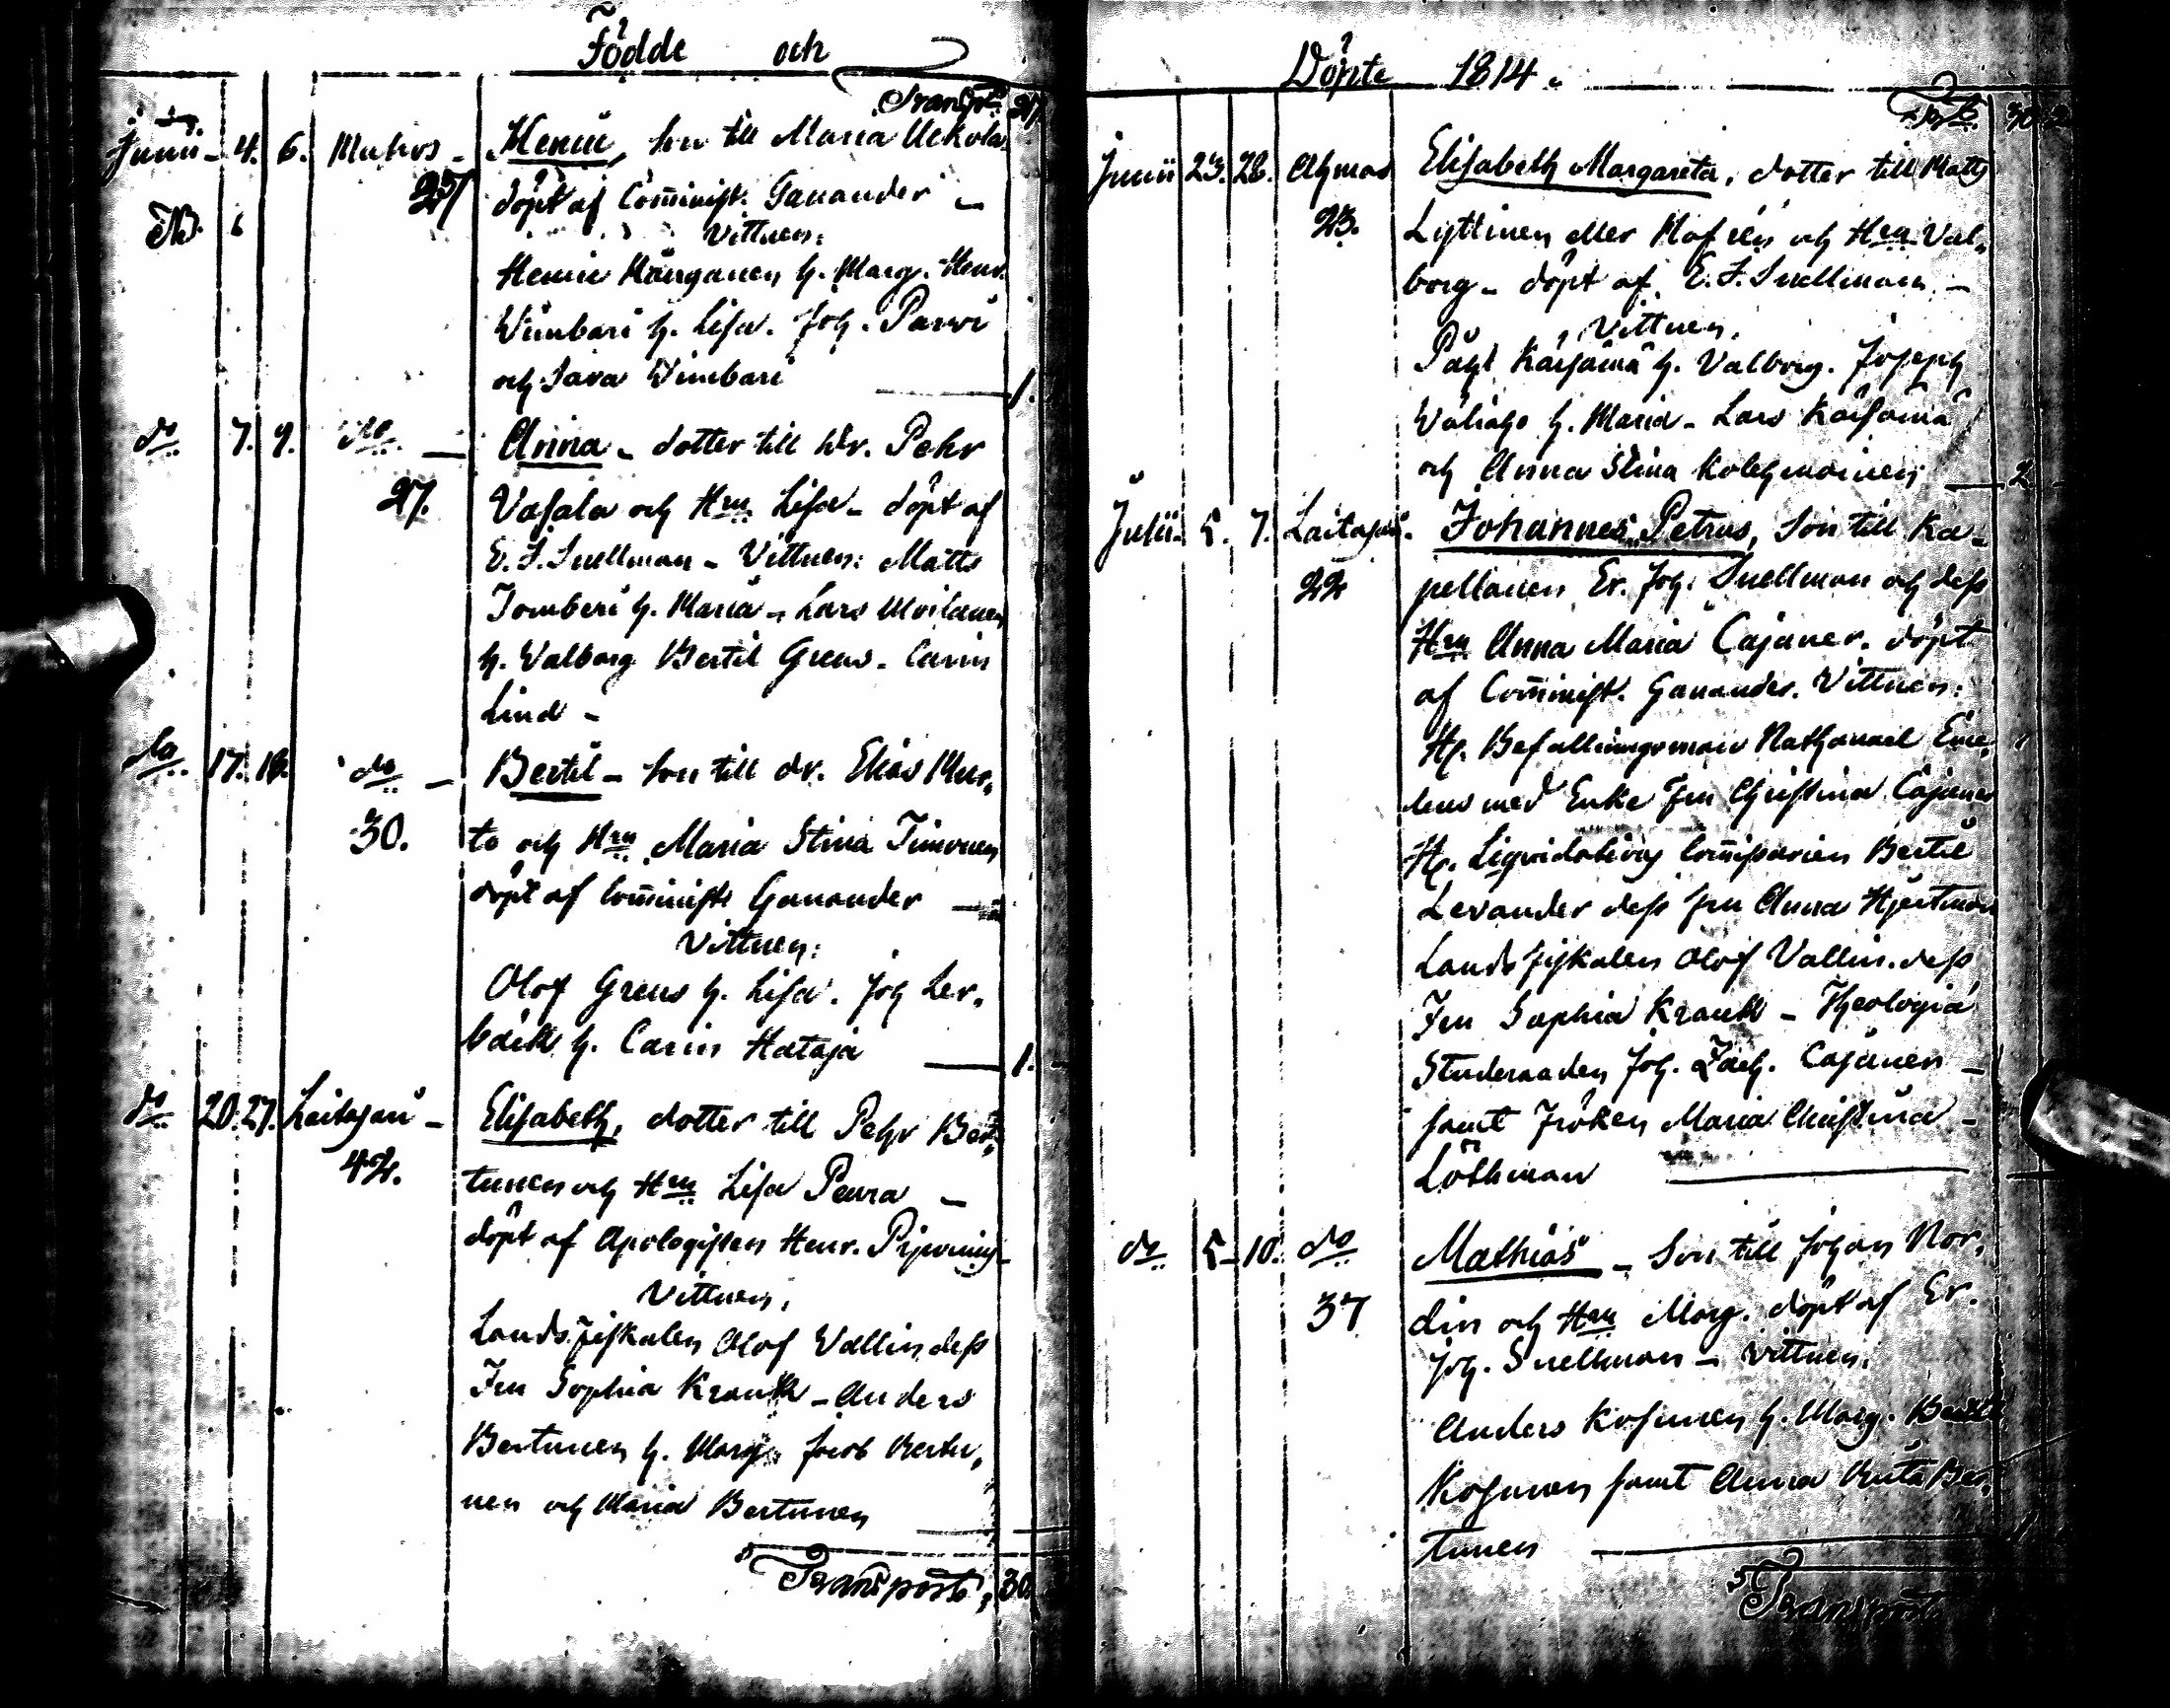 Födde och
Transpt 27.
Junii - 4. 6. Muhos - Henric, son till Maria Uckola
27 döpt af Com̄inist. Ganander -
NB. 6
Vittnen:
Henric h. Marg. Henr.
Wimbari h. Lisa. Joh. Parvi
och Sara Wimbari 1.
do 7. 9. do - Anna - dotter till dr. Pehr
27. Vasala och Hru Lisa - döpt af
E. J. Snellman - Vittnen: Matts
h. Maria - Lars Moilanen
h. Valborg Bertil Greus - Carin
Lind -
do 17. 18. do - Bertil - son till dr. Elias Mur,
30. to och Hru Maria Stina Timonen
döpt af Com̄inist. Ganander -
Vittnen:
Olof Greus h. Lisa. Joh Ler,
bäck h. Carin Hataja 1.
do 20. 27. Laitasari - Elisabeth, dotter till Pehr Ber,
42. tunen och Hru Lisa Peura -
döpt af Apologisten Henr.
Vittnen,
Landsfiskalen Olof Wallin dess
Fru Sophia Kranck - Anders
Bertunen h. Marg. Jacob Bertu,
nen och Maria Bertunen
Transport, 30
Döpte 1814.
Junii 23. 26. Ahmas Elisabeth Margareta, dotter till Matts
23. Lyttinen eller och Hru Val,
borg - döpt af E. J. Snellman -
Vittnen,
Påhl Karsama h. Valborg. Joseph
h. Maria - Lars Karsama
och Anna Stina Kolehmainen 2
Julii. 5. 7. Laitasari. Johannes Petrus, Son till Ka-
22 pellanen Er. Joh. Snellman och dess
Hru Anna Maria Cajaner. döpt
af Com̄inist. Ganander. Vittnen:
Hr. Befallningsman Nathanael Eme,
leus med Enke Fru Christina Cajaner
Hr. Liqvidations Com̄issarien Bertil
Levander dess fru Anna Hjertman
Landsfiskalen Olof Vallin. dess
Fru Sophia Kranck - Theologiä
Studeranden Joh. Zach. Cajanen -
samt Fröken Maria Christina -
Löthman
do 5 - 10. do Mathias - Son till Johan Nor,
37 din och Hru Marg. döpt af Er.
Joh. Snellman - Vittnen,
Anders Kosunen h. Marg.
Kosunen samt Anna Ber,
tunen
Transport